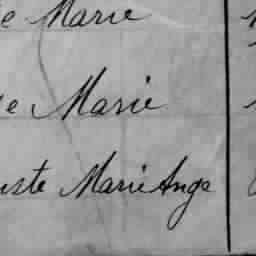 e Marie
e Marie
uste Marie Ange